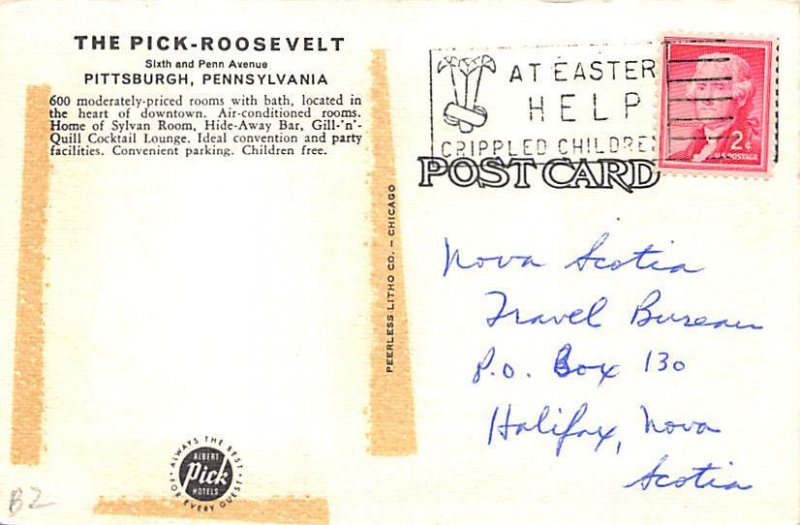 THE PICK-ROOSEVELT
Sixth and Penn Avenue
PITTSBURGH, PENNSYLVANIA
600 moderately-priced rooms with bath, located in
the heart of downtown. Air-conditioned rooms.
Home of Sylvan Room, Hide-Away Bar, Gill-'n'-
Quill Cocktail Lounge. Ideal convention and party
facilities. Convenient parking. Children free.
PEERLESS LITHO CO. — CHICAGO
AT EASTER
HELP
CRIPPLED CHILDRE
2¢
U.S. POSTAGE
POST CARD
Nova Scotia
Travel Bureau
P.O. Box 130
Halifax, Nova
Scotia
ALWAYS THE BEST
ALBERT
Pick
HOTELS
FOR EVERY GUEST
B2